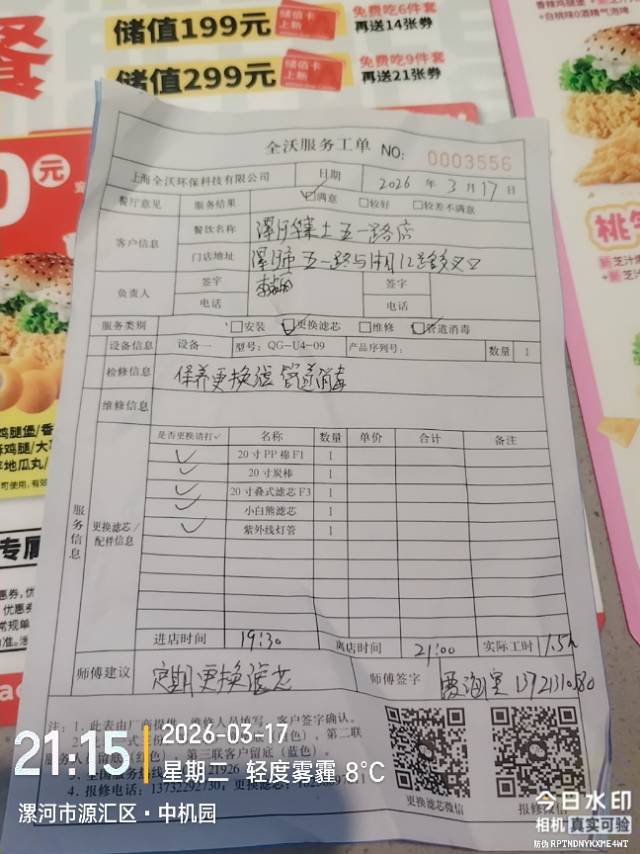 储值199元
储值卡
上新
免费吃6件套
再送14张券
储值299元
储值卡
上新
免费吃9件套
再送21张券
餐
0元
香辣鸡腿堡
+白桃味0酒精气泡啤
全沃服务工单 NO: 0003556
上海全沃环保科技有限公司 日期 2026 年 3 月 17 日
餐厅意见 服务结果 ☑满意 □较好 □较差不满意
客户信息 餐饮名称 五一路店
门店地址 漯河市五一路与
负责人 签字 签字
电话 电话
服务类别 □安装 ☑更换滤芯 □维修 ☑管道消毒
设备信息 设备一 型号: QG-U4-09 产品序列号: 数量 1
检修信息 保养更换滤 管道消毒
维修信息
服务信息
更换滤芯/配件信息
是否更换请打✓ 名称 数量 单价 合计 备注
✓ 20寸PP棉F1 1
✓ 20寸炭棒 1
✓ 20寸叠式滤芯F3 1
✓ 小白熊滤芯 1
✓ 紫外线灯管 1
进店时间 19:30 离店时间 21:00 实际工时 1.5h
师傅建议 定期更换滤芯 师傅签字
注: 1. 此表由厂商提供, 维修人员填写, 客户签字确认。
第二联
第三联客户留底(蓝色)。
4. 报修电话: 13732292730, 更换滤芯:
更换滤芯微信 报修微信
21:15
2026-03-17
星期二 轻度雾霾 8℃
漯河市源汇区·中机园
今日水印
相机 真实可验
防伪 RPTNDNYKXME4WT